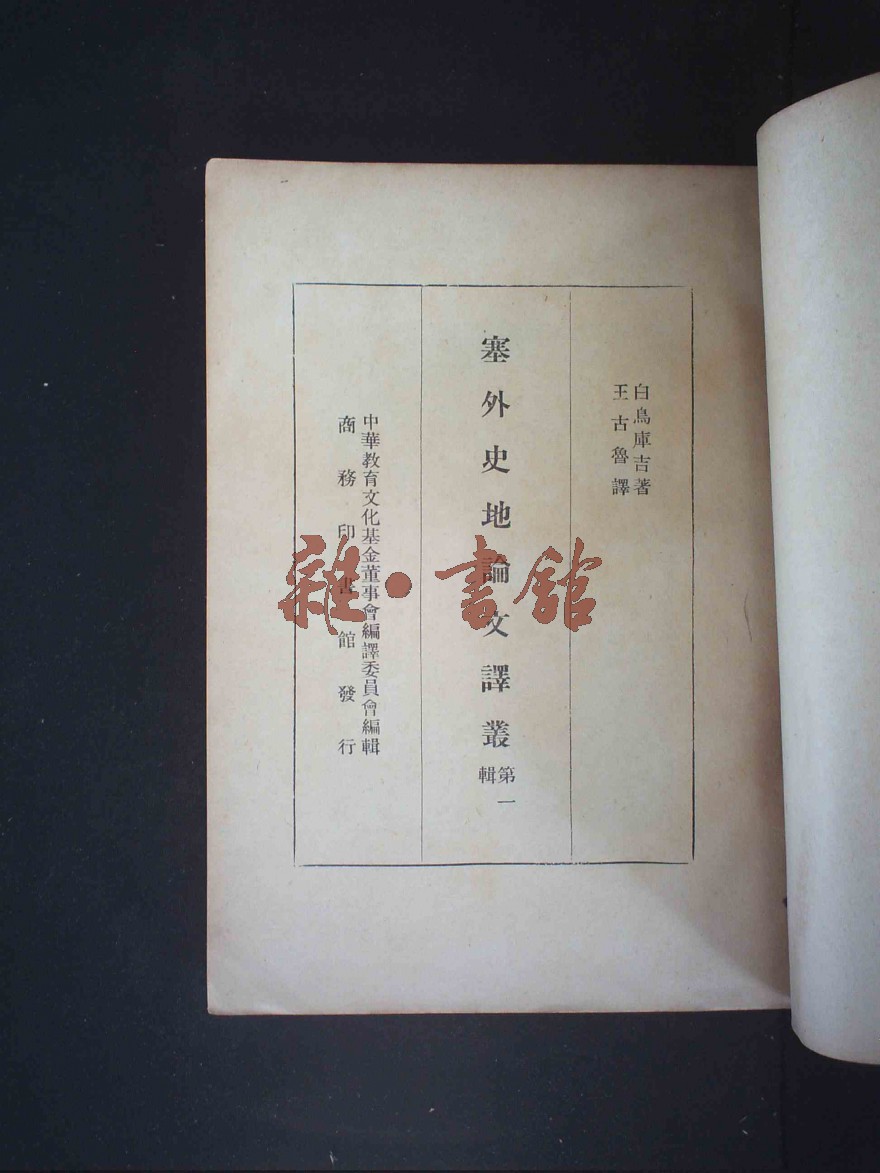 白鳥庫吉著
王古魯譯
塞外史地論文譯叢
第一
輯
中華教育文化基金董事會編譯委員會編輯
商務印書館發行
雜·書館